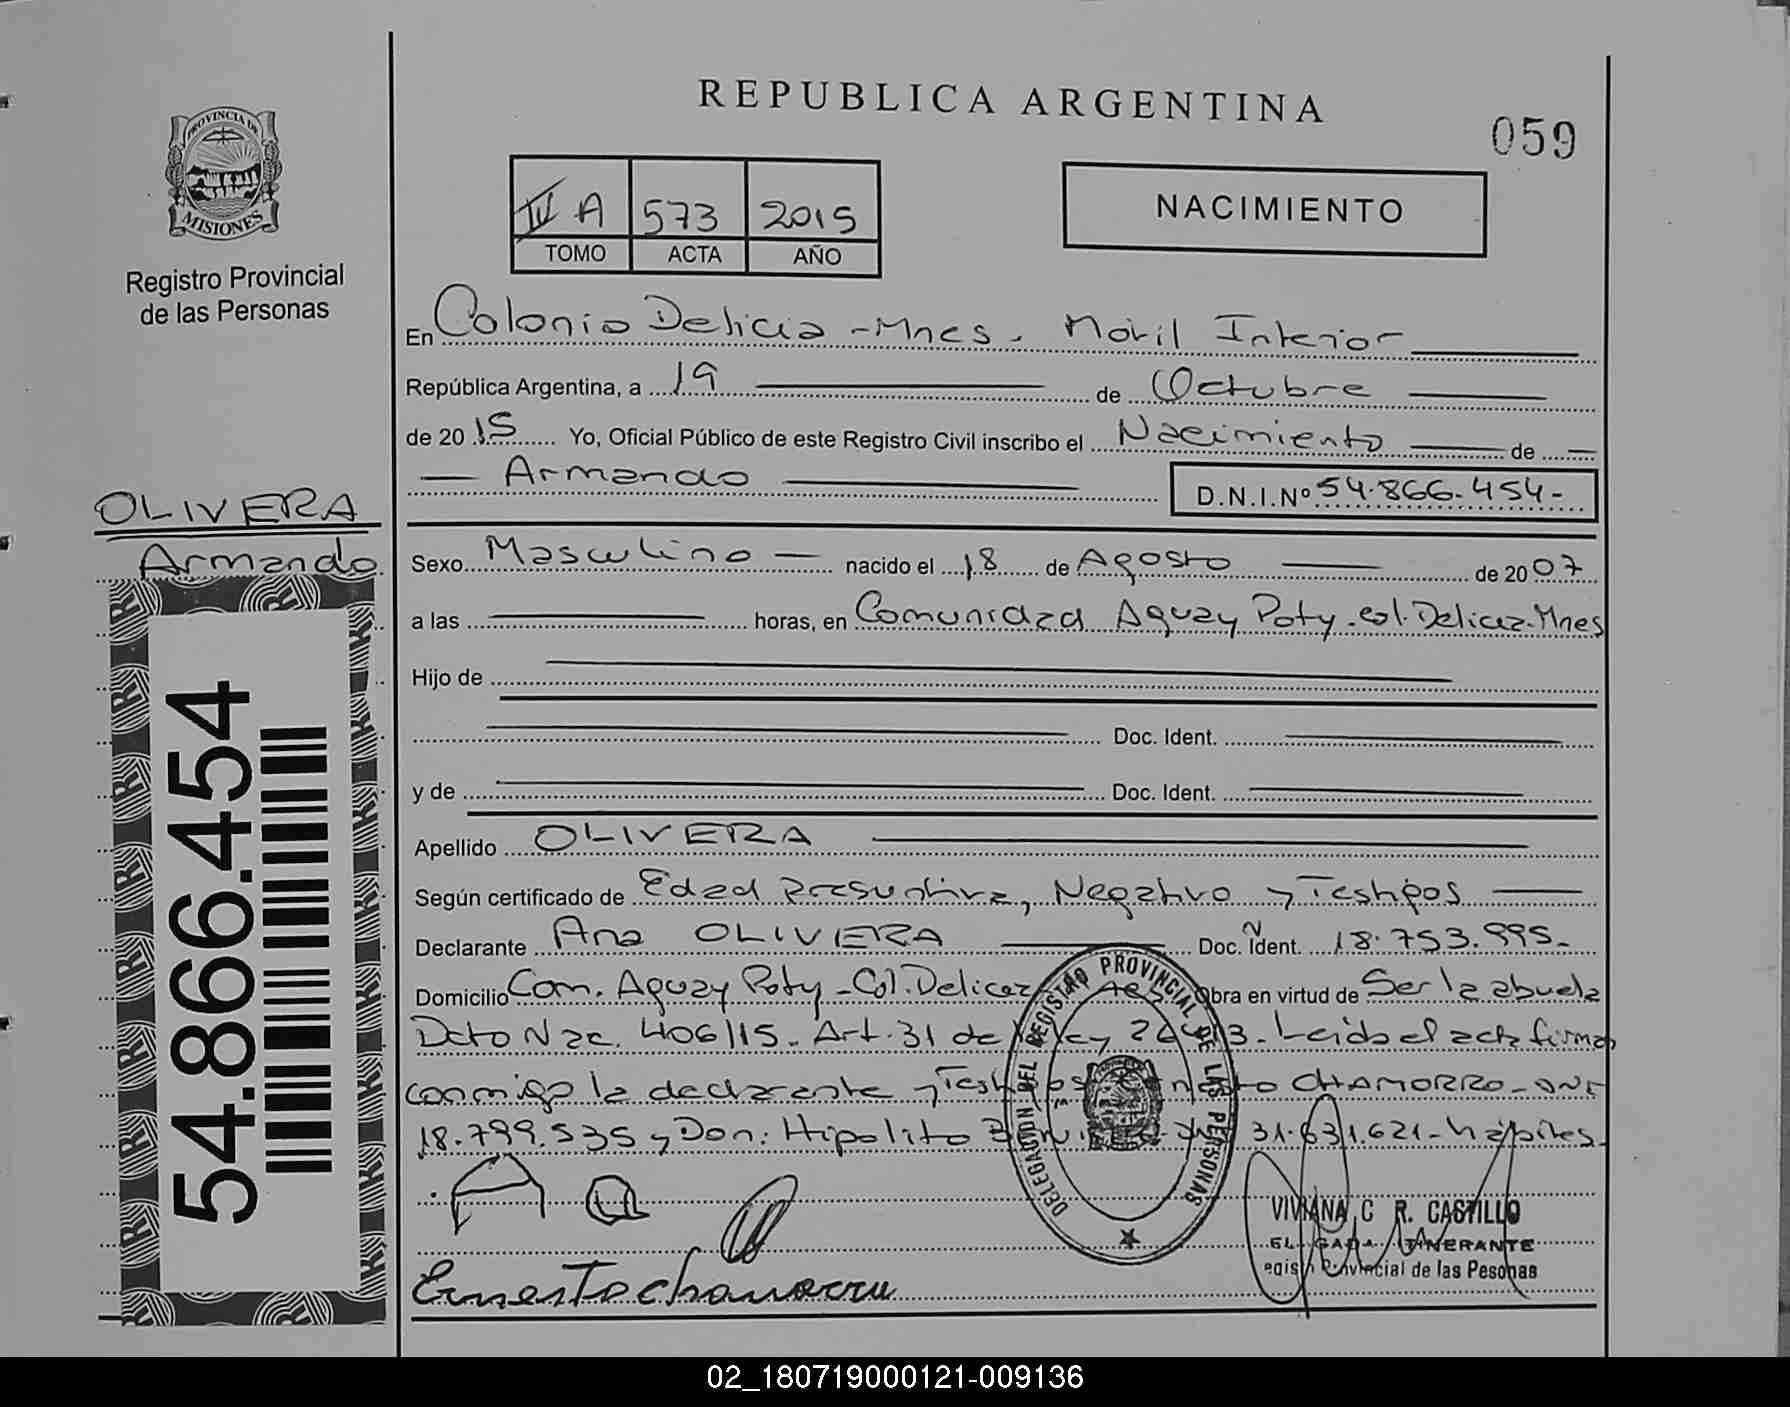 REPUBLICA ARGENTINA
059
PROVINCIA DE
MISIONES
Registro Provincial
de las Personas
IV A 573 2015
TOMO ACTA AÑO
NACIMIENTO
En Colonia Delicia - Mnes. Móvil Interior
República Argentina, a 19 de Octubre
de 20 15 Yo, Oficial Público de este Registro Civil inscribo el Nacimiento de
Armando
D.N.I.Nº 54.866.454-
OLIVERA
Armando
54.866.454
Sexo Masculino nacido el 18 de Agosto de 20 07
a las horas, en Comunidad Aguay Poty. Col. Delicia-Mnes
Hijo de
Doc. Ident.
y de Doc. Ident.
Apellido OLIVERA
Según certificado de Edad Presuntiva, Negativo y Testigos
Declarante Ana OLIVERA Doc. Ident. N 18.753.995-
Domicilio Com. Aguay Poty - Col. Delicia Obra en virtud de Ser la abuela
Dcto Nac. 406/15. Art. 31 de Ley 3. Leída el acta firma
conmigo la declarante y CHAMORRO - DNI
18.799.535 y Don: Hipolito 31.631.621 - hábiles.
DELEGACION DEL REGISTRO PROVINCIAL DE LAS PERSONAS
Ernesto chamorru
VIVIANA C R. CASTILLO
ELEGADA ITINERANTE
egistro Provincial de las Pesonas
02_180719000121-009136